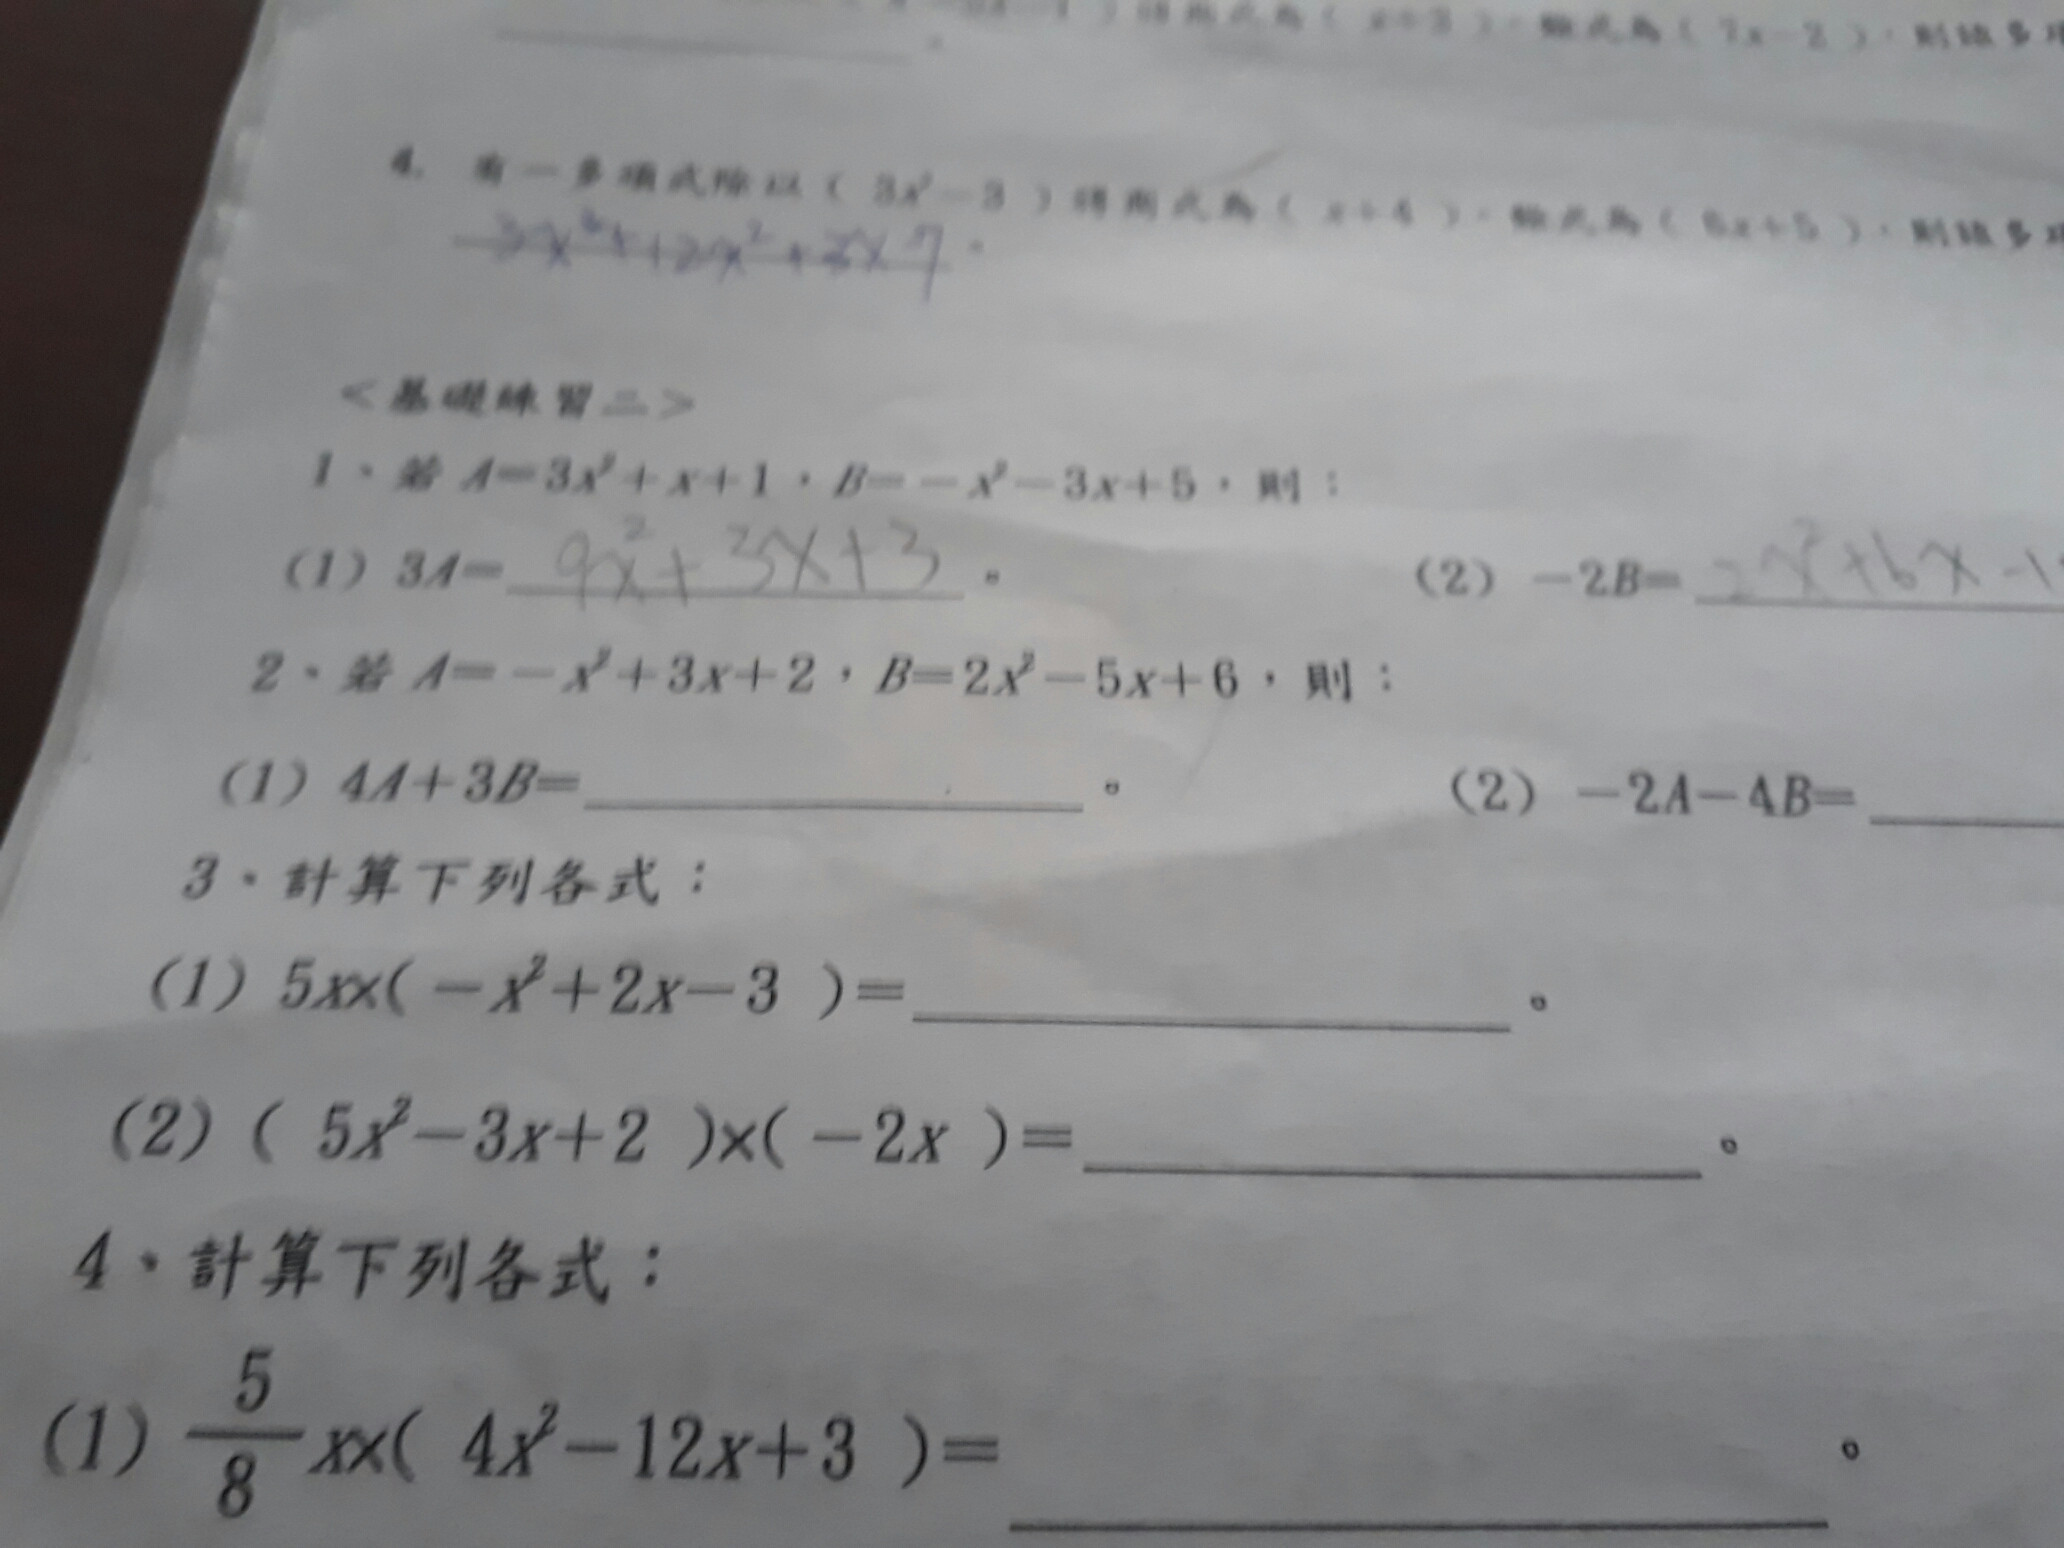 得商式為( x+3 )，餘式為( 7x-2 )，則該多項
4. 有一多項式除以( 3x²-3 )得商式為( x+4 )，餘式為( 6x+5 )，則該多項
。
<基礎練習二>
1、若 A=3x²+x+1，B=-x²-3x+5，則：
(1) 3A= 9x²+3x+3 。 (2) -2B= 2x²+6x-1
2、若 A=-x²+3x+2，B=2x²-5x+6，則：
(1) 4A+3B= 。 (2) -2A-4B=
3、計算下列各式：
(1) 5x×( -x²+2x-3 )= 。
(2) ( 5x²-3x+2 )×( -2x )= 。
4、計算下列各式：
(1) 5/8 x×( 4x²-12x+3 )= 。